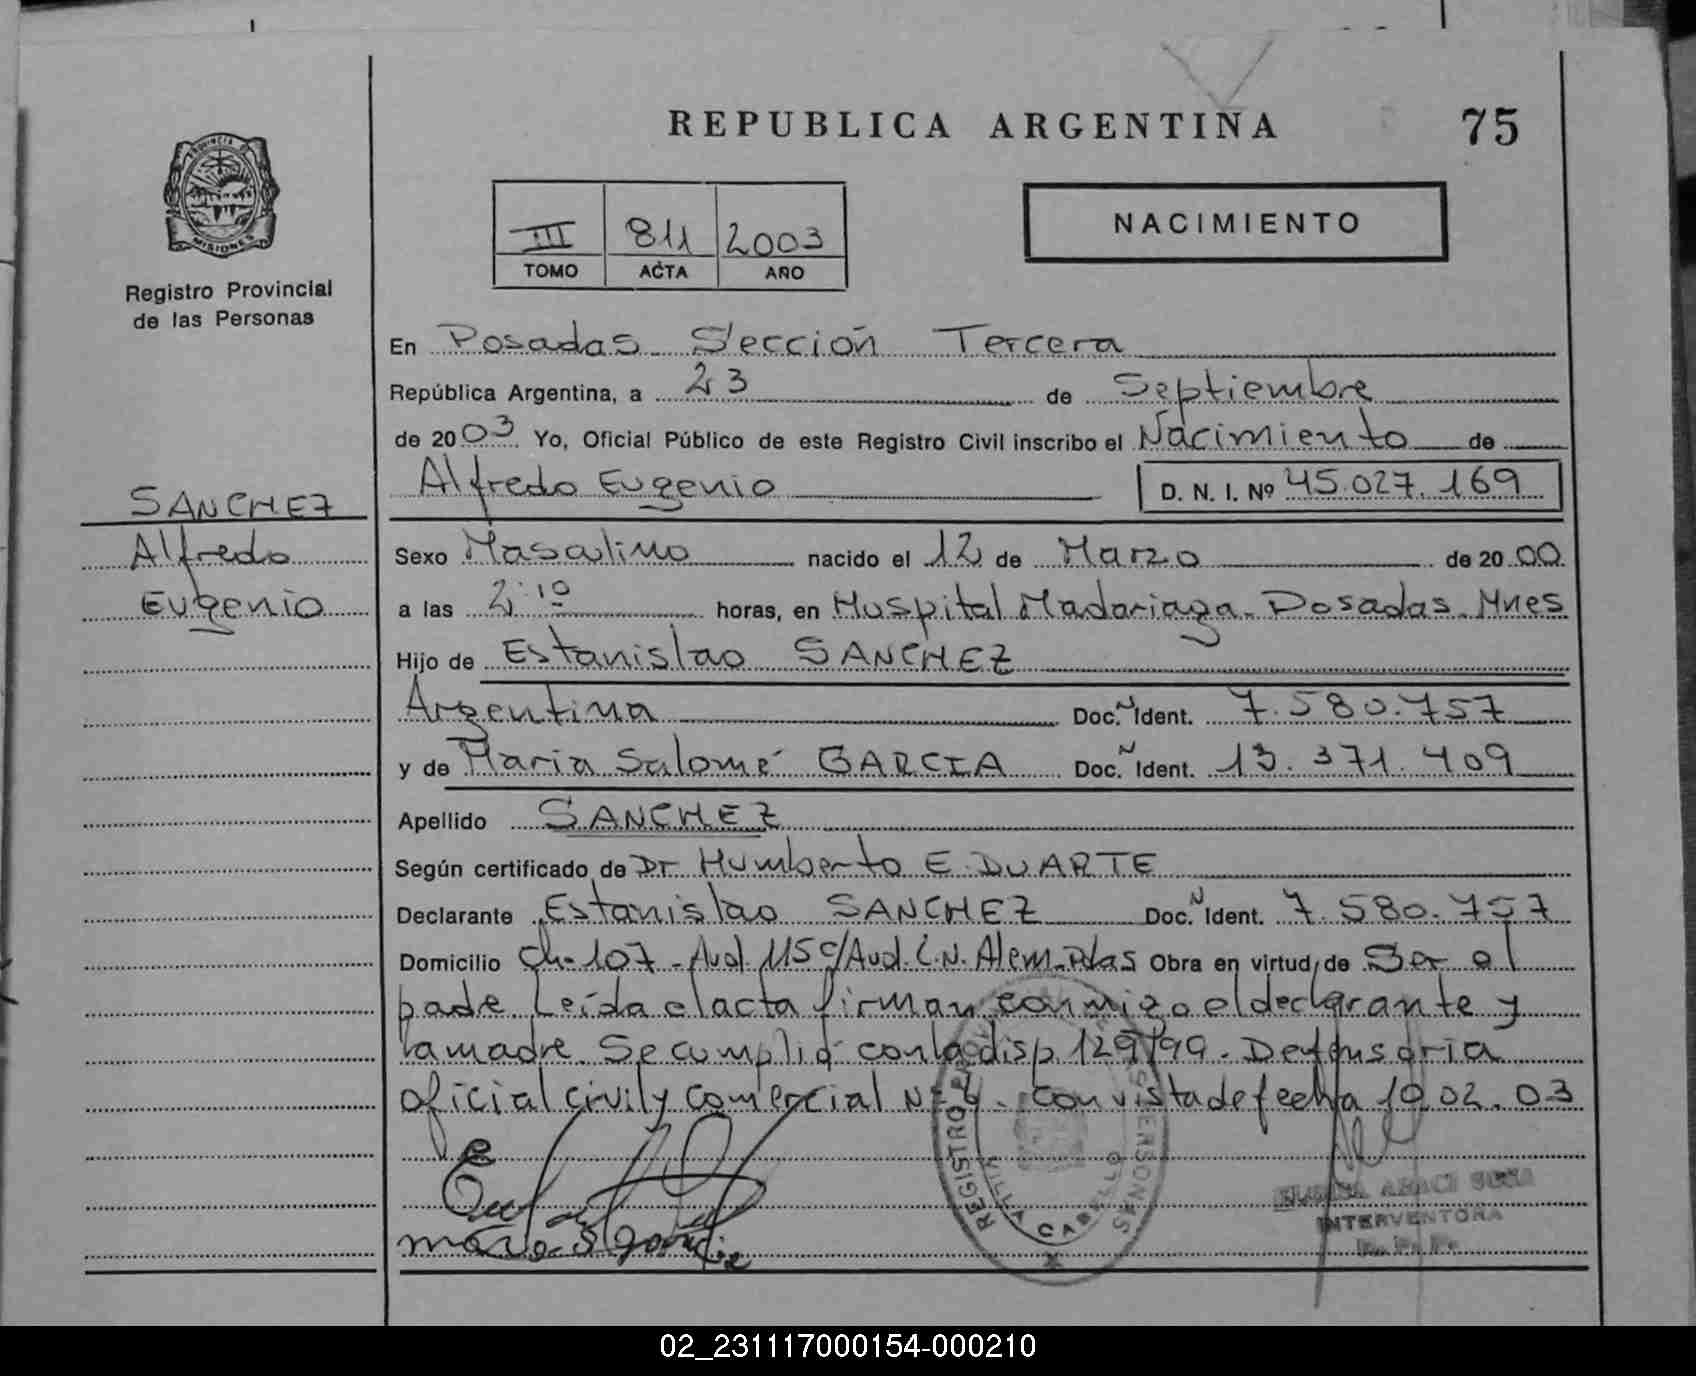 REPUBLICA ARGENTINA
75
Provincia de
MISIONES
Registro Provincial
de las Personas
III 811 2003
TOMO ACTA AÑO
NACIMIENTO
En Posadas Sección Tercera
República Argentina, a 23 de Septiembre
de 2003 Yo, Oficial Público de este Registro Civil inscribo el Nacimiento de
Alfredo Eugenio D. N. I. Nº 45.027.169
SANCHEZ
Alfredo
Eugenio
Sexo Masculino nacido el 12 de Marzo de 2000
a las 2:10 horas, en Hospital Madariaga - Posadas - Mnes
Hijo de Estanislao SANCHEZ
Argentina Doc. N Ident. 7.580.757
y de Maria Salomé GARCIA Doc. N Ident. 13.371.409
Apellido SANCHEZ
Según certificado de Dr Humberto E. DUARTE
Declarante Estanislao SANCHEZ Doc. N Ident. 7.580.757
Domicilio Ch- 107 - Avd. 115 c/Avd. L.N. Alem - Pdas Obra en virtud de Ser el
padre. Leída el acta firman conmigo el declarante y
la madre. Se cumplió con la disp. 129/99. Defensoria
oficial civil y comercial Nº 4. con vista de fecha 10.02.03
REGISTRO PERSONAS
CABELLO
INTERVENTORA
02_231117000154-000210